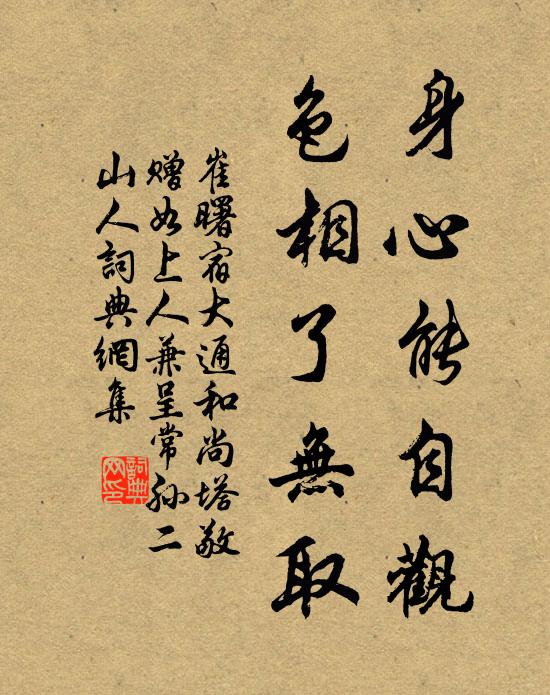 身心能自觀
色相了無取
崔曙宿大通和尚塔敬
贈如上人兼呈常孙二
山人詞典網集
詞典网印